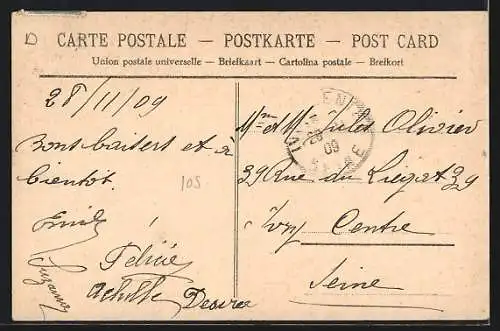 D
CARTE POSTALE — POSTKARTE — POST CARD
Union postale universelle — Briefkaart — Cartolina postale — Breikort
28/11/09
Bons baisers et a
bientot
105
Emile
Felicie
Suzanne
Achille Desiree
Mme et M Jules Olivier
39 Rue du Liegat 39
Ivry Centre
Seine
09